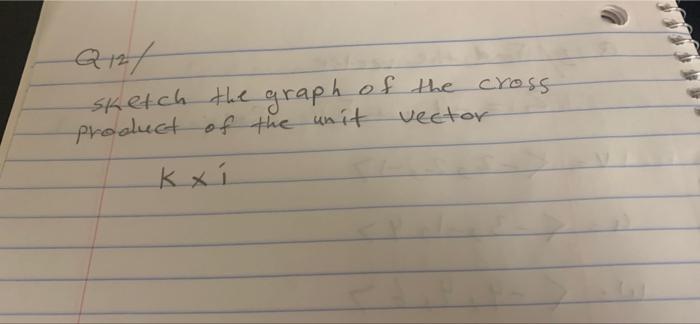 Q12/
sketch the graph of the cross
product of the unit vector
k x i